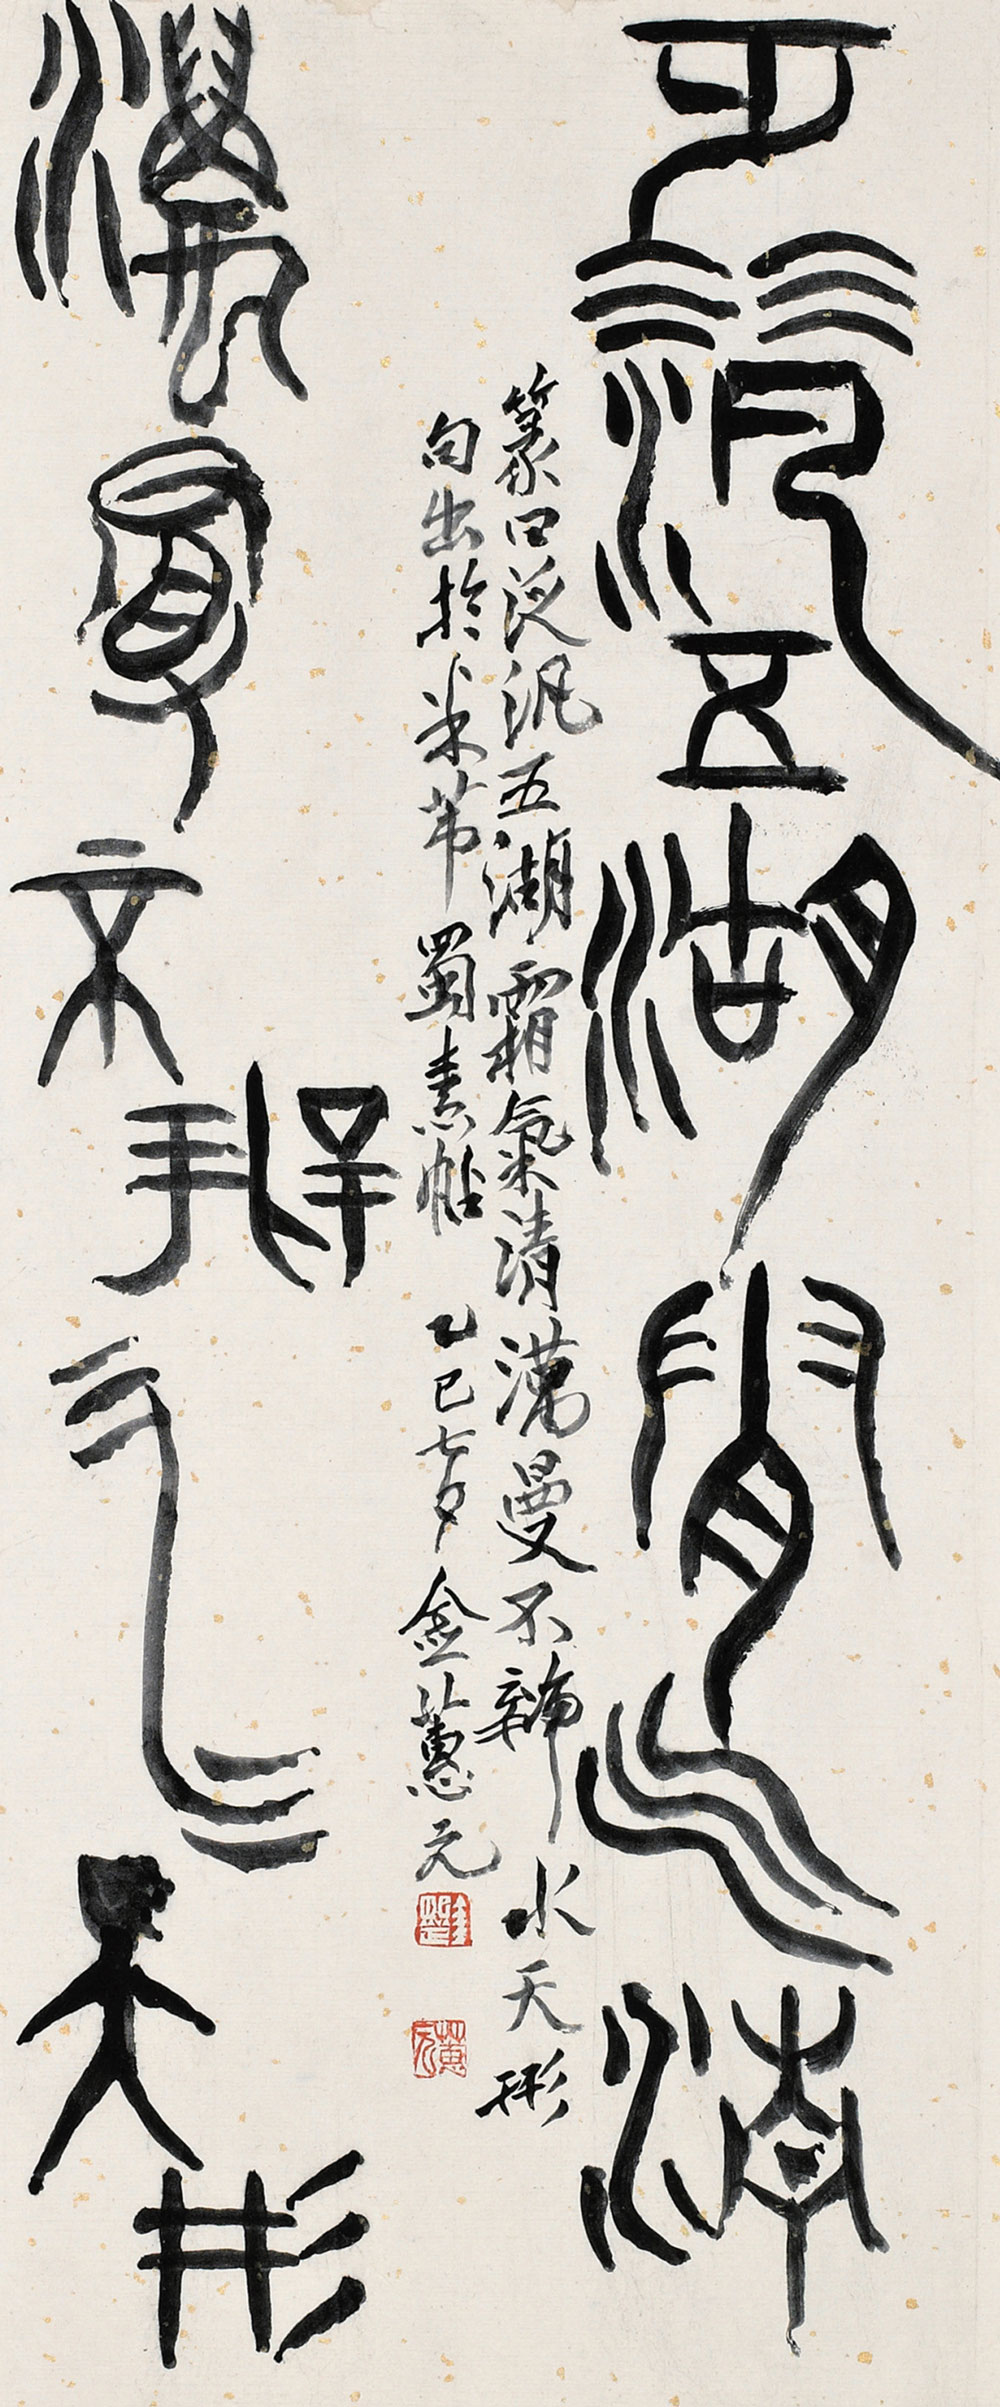 泛汎五湖霜氣清
澫曼不辨水天形
篆曰泛汎五湖霜氣清澫曼不辨水天形
句出於米芾蜀素帖 乙巳七夕 金蕙元